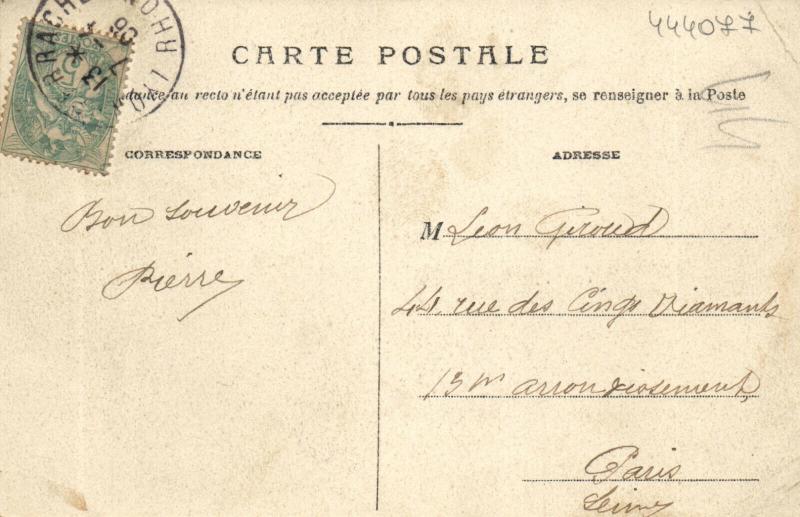 444077
CARTE POSTALE
dance au recto n'étant pas acceptée par tous les pays étrangers, se renseigner à la Poste
CORRESPONDANCE
Bon souvenir
Pierre
ADRESSE
M Leon Giroud
44 rue des Cinqs Diamants
13me arrondissement
Paris
Seine